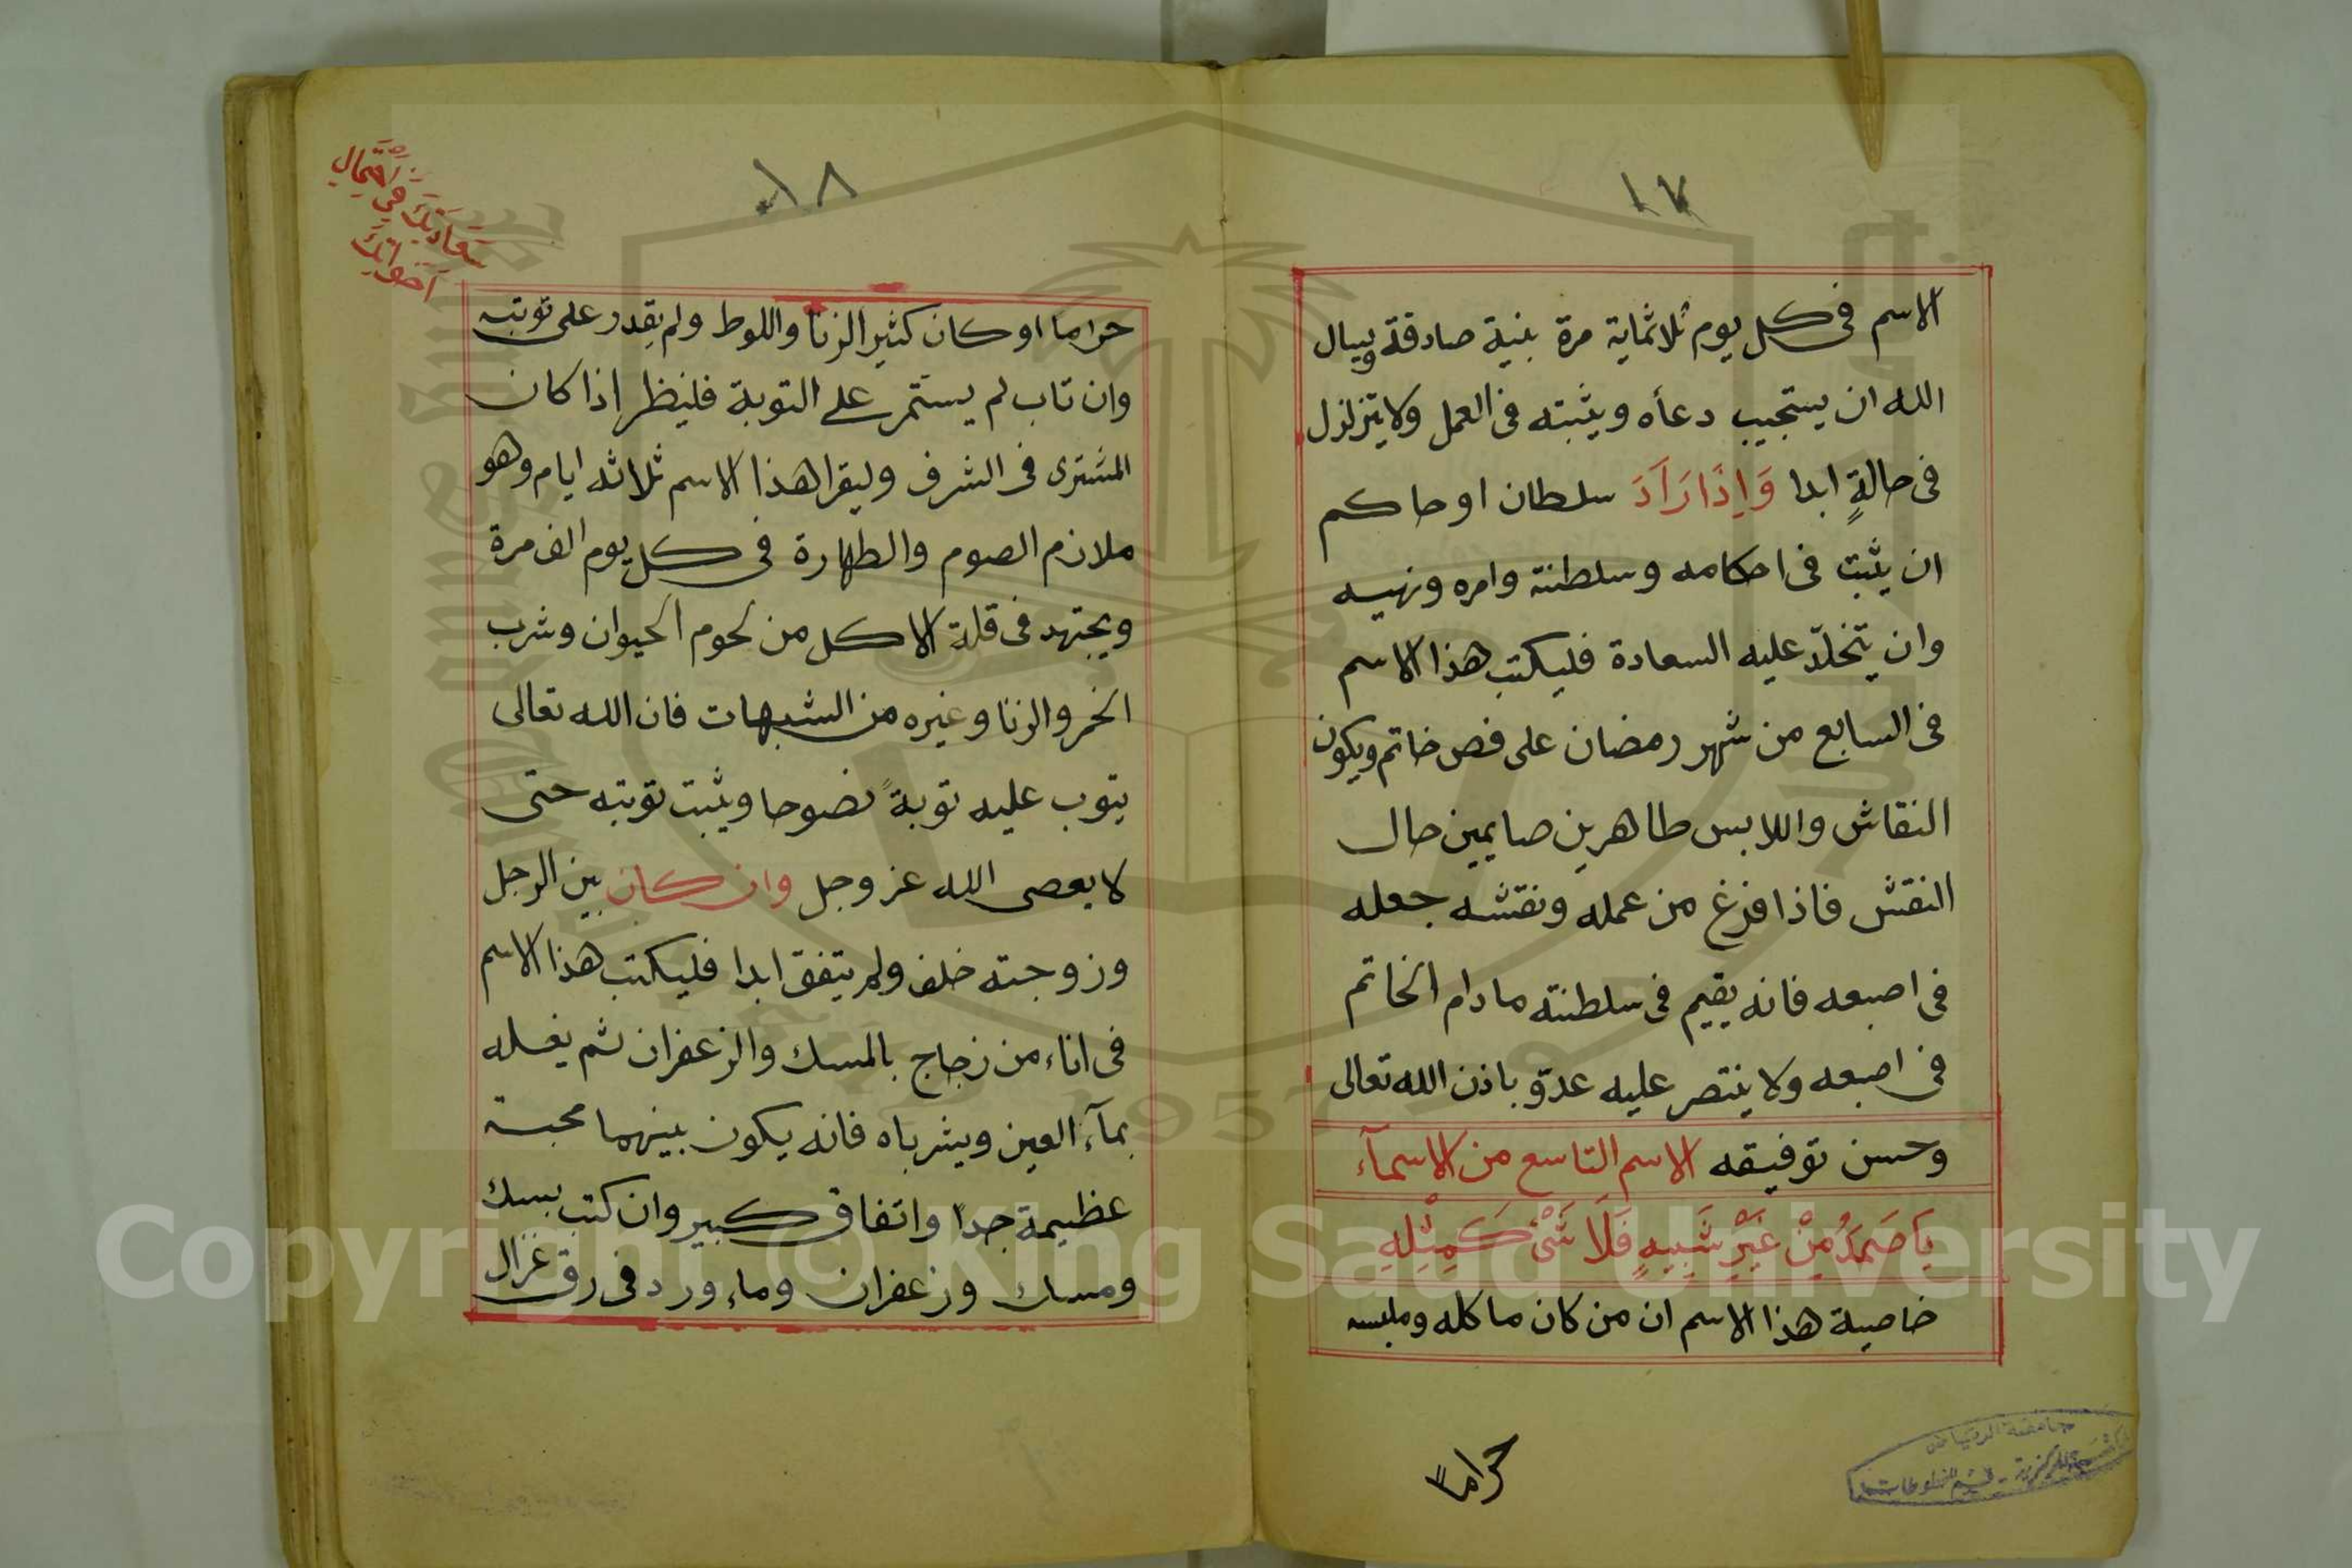 ١٧
الاسم فى كل يوم ثلاثماية مرة بنية صادقة ويسال
الله ان يستجيب دعأه ويثبته فى العمل ولا يتزلزل
فى حالةٍ ابدا وَاِذَا رَآدَ سلطان او حاكم
ان يثبت فى احكامه وسلطنته وامره ونهيه
وان يتخلّد عليه السعادة فليكتب هذا الاسم
فى السابع من شهر رمضان على فص خاتم ويكون
النقاش واللابس طاهرين صايمين حال
النقش فاذا فرغ من عمله ونقشه جعله
فى اصبعه فانه يقيم فى سلطنته مادام الخاتم
فى اصبعه ولا ينتصر عليه عدوّ باذن الله تعالى
وحسن توفيقه الاسم التاسع من الاسمآء
يَا صَمَدُ مِنْ غَيْرِ شَبِيهٍ فَلَا شَىْءَ كَمِثْلِهِ
خاصية هذا الاسم ان من كان ماكله وملبسه
حرامًا
جامعة الرياض
١٨
سَعَادَتِكَ فِى اِحْتِمَالِ
اخوانك
حراما او كان كثير الزنا واللوط ولم يقدر على توبته
وان تاب لم يستمر على التوبة فلينظر اذا كان
المشترى فى الشرف وليقرا هذا الاسم ثلاثه ايام وهو
ملازم الصوم والطهارة فى كل يوم الف مرة
ويجتهد فى قلة الاكل من لحوم الحيوان وشرب
الخمر والزنا وغيره من الشبهات فان الله تعالى
يتوب عليه توبةً نصوحا ويثبت توبته حتى
لا يعصى الله عز وجل وان كان بين الرجل
وزوجته خلف ولم يتفق ابدا فليكتب هذا الاسم
فى اناء من زجاج بالمسك والزعفران ثم يغسله
بمآء العين ويشرباه فانه يكون بينهما محبة
عظيمة جداً واتفاق كبير وان كتب بسك
ومسك وزعفران وماء ورد فى رق غزال
Copyright © King Saud University
1957